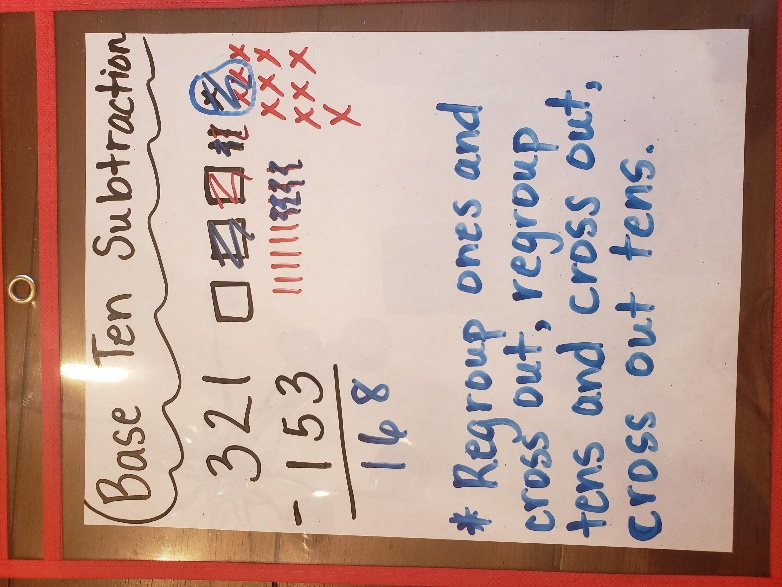 Base Ten Subtraction
321
- 153
168
* Regroup ones and
cross out, regroup
tens and cross out,
cross out tens.